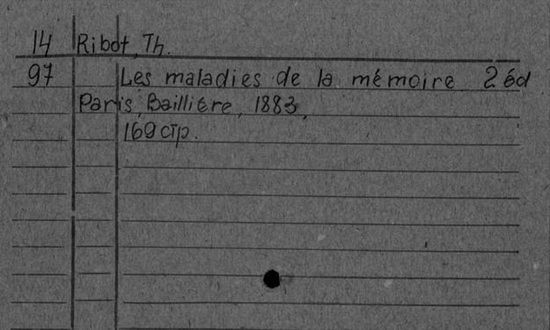 14 Ribot, Th.
97 Les maladies de la mémoire 2 éd
Paris, Baillière, 1883,
169 стр.